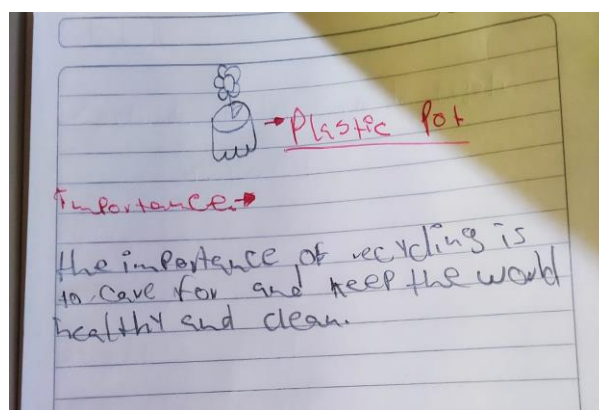 →Plastic Pot
Importance→
the importance of recycling is
to care for and keep the world
healthy and clean.